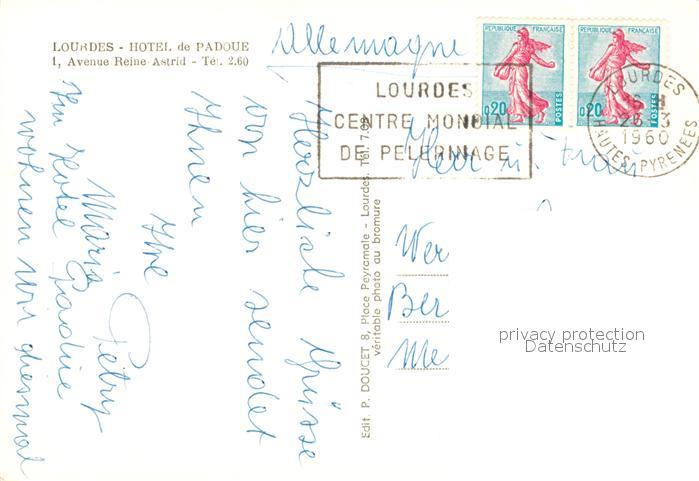 LOURDES - HOTEL de PADOUE
1, Avenue Reine-Astrid - Tél. 2.60
Allemagne
REPUBLIQUE FRANÇAISE
0,20
POSTES
REPUBLIQUE FRANÇAISE
0,20
POSTES
LOURDES
CENTRE MONDIAL
DE PELERINAGE
LOURDES
1960
HAUTES PYRENEES
Herzliche Grüsse
von hier sendet
Ihnen
Ihre
Maria Petry
Im Hotel Padoue
wohnen wir diesmal
Edit. P. DOUCET 8, Place Peyramale - Lourdes. Tél.
véritable photo au bromure
Herr u. Frau
Wer
Ber
Me
privacy protection
Datenschutz